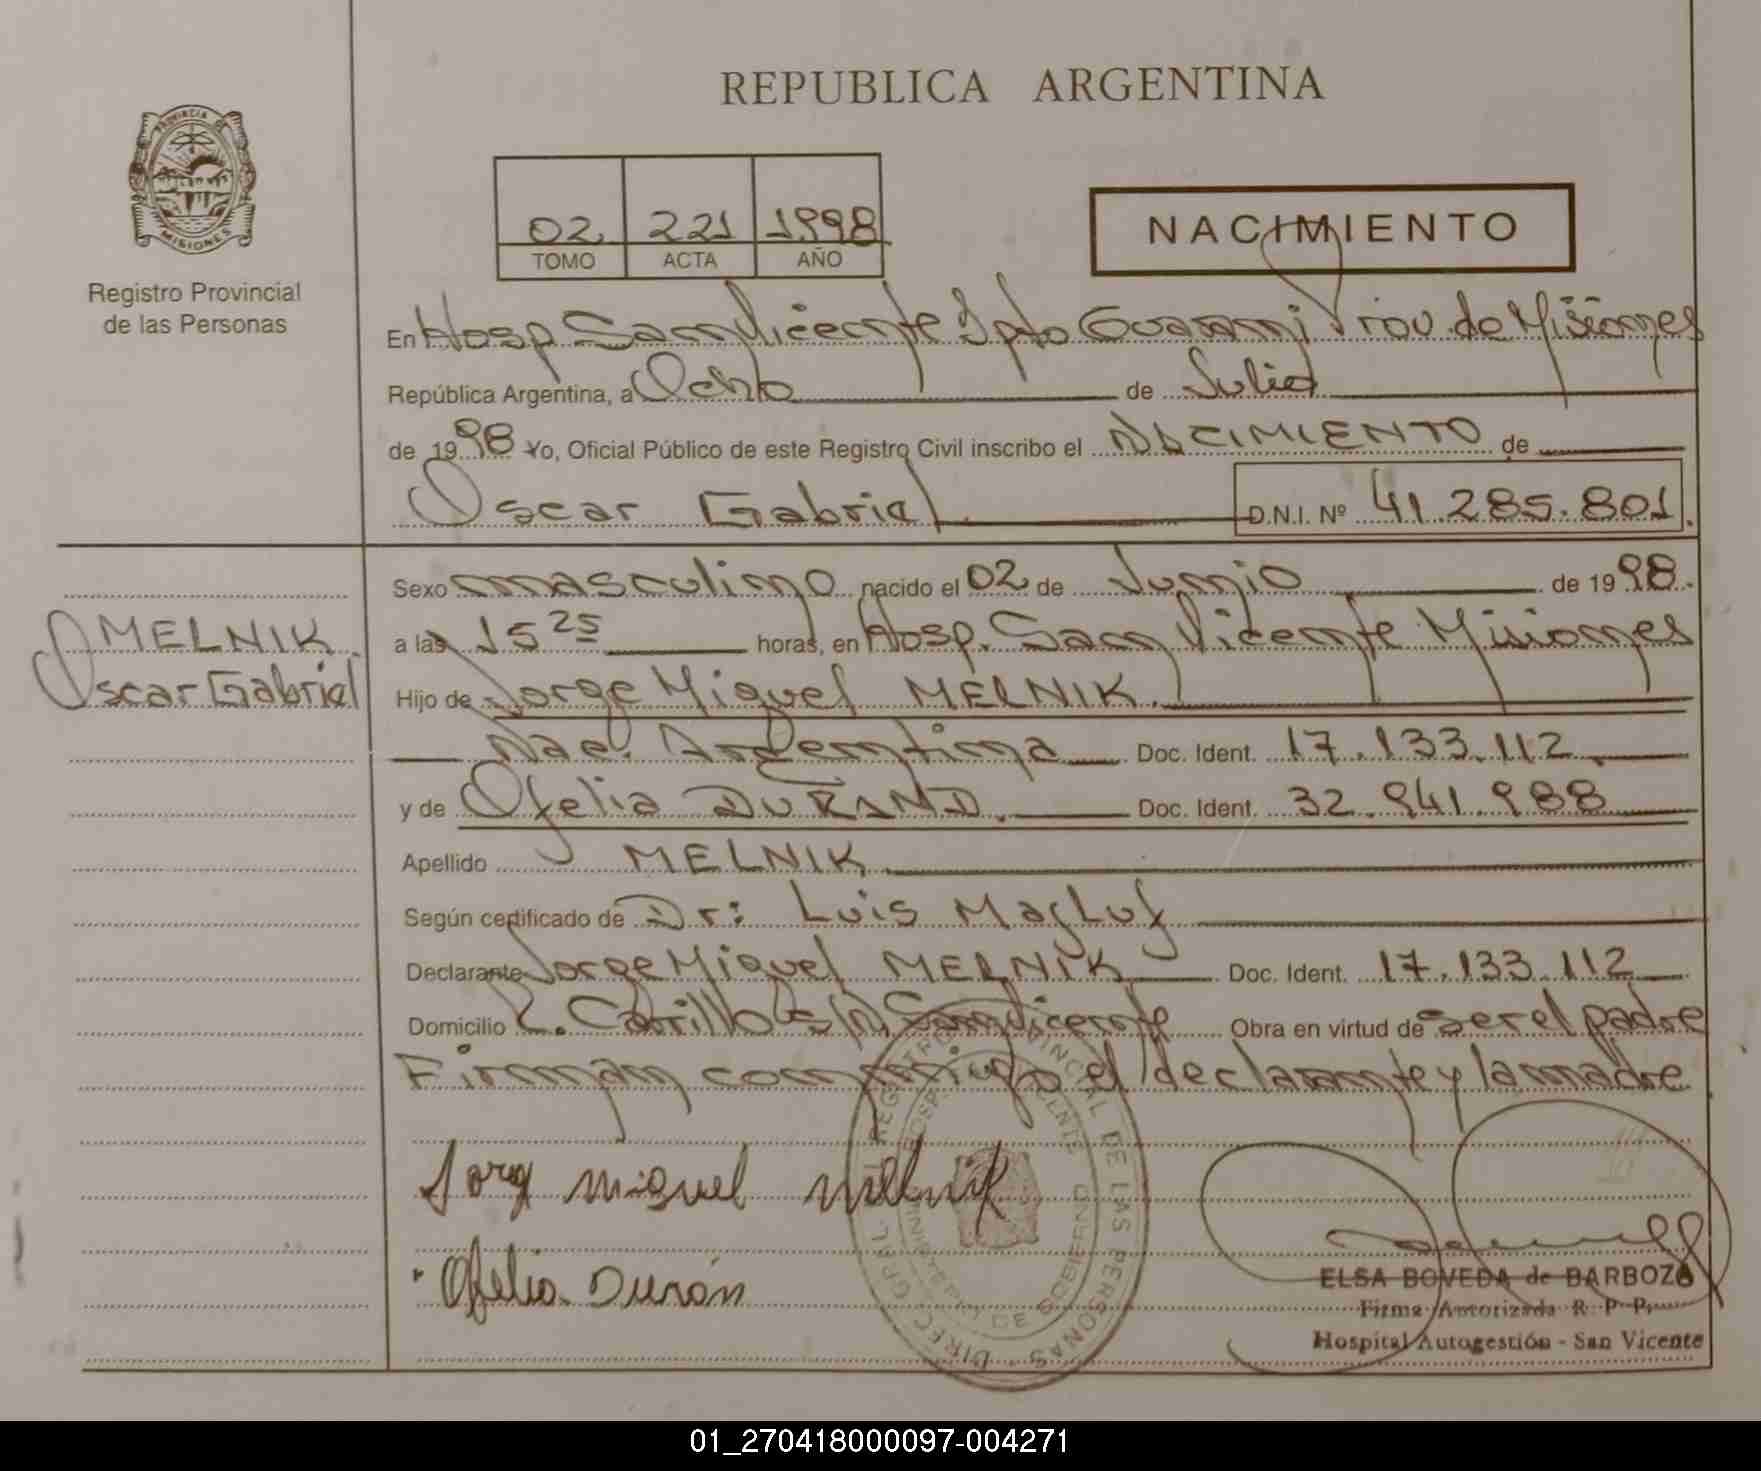 REPUBLICA ARGENTINA
PROVINCIA DE
MISIONES
Registro Provincial
de las Personas
02 221 1998
TOMO ACTA AÑO
NACIMIENTO
En Hosp San Vicente Dpto Guarani Prov. de Misiones
República Argentina, a Ocho de Julio
de 1998 Yo, Oficial Público de este Registro Civil inscribo el NACIMIENTO de
Oscar Gabriel D.N.I. Nº 41.285.801
Sexo masculino nacido el 02 de Junio de 1998.
MELNIK
Oscar Gabriel
a las 15 25 horas, en Hosp. San Vicente Misiones
Hijo de Jorge Miguel MELNIK.
Nac. Argentina Doc. Ident. 17.133.112
y de Ofelia DURAND. Doc. Ident. 32.941.988
Apellido MELNIK
Según certificado de Dr: Luis Masluf
Declarante Jorge Miguel MELNIK Doc. Ident. 17.133.112
Domicilio R. Carrillo S/N. San Vicente Obra en virtud de ser el padre
Firman conmigo el declarante y la madre
Jorg miguel Melnik
Ofelia Durán
REGISTRO PROVINCIAL DE LAS PERSONAS DIREC. GRAL.
ELSA BOVEDA de BARBOZA
Firma Autorizada R. P. P.
Hospital Autogestión - San Vicente
01_270418000097-004271